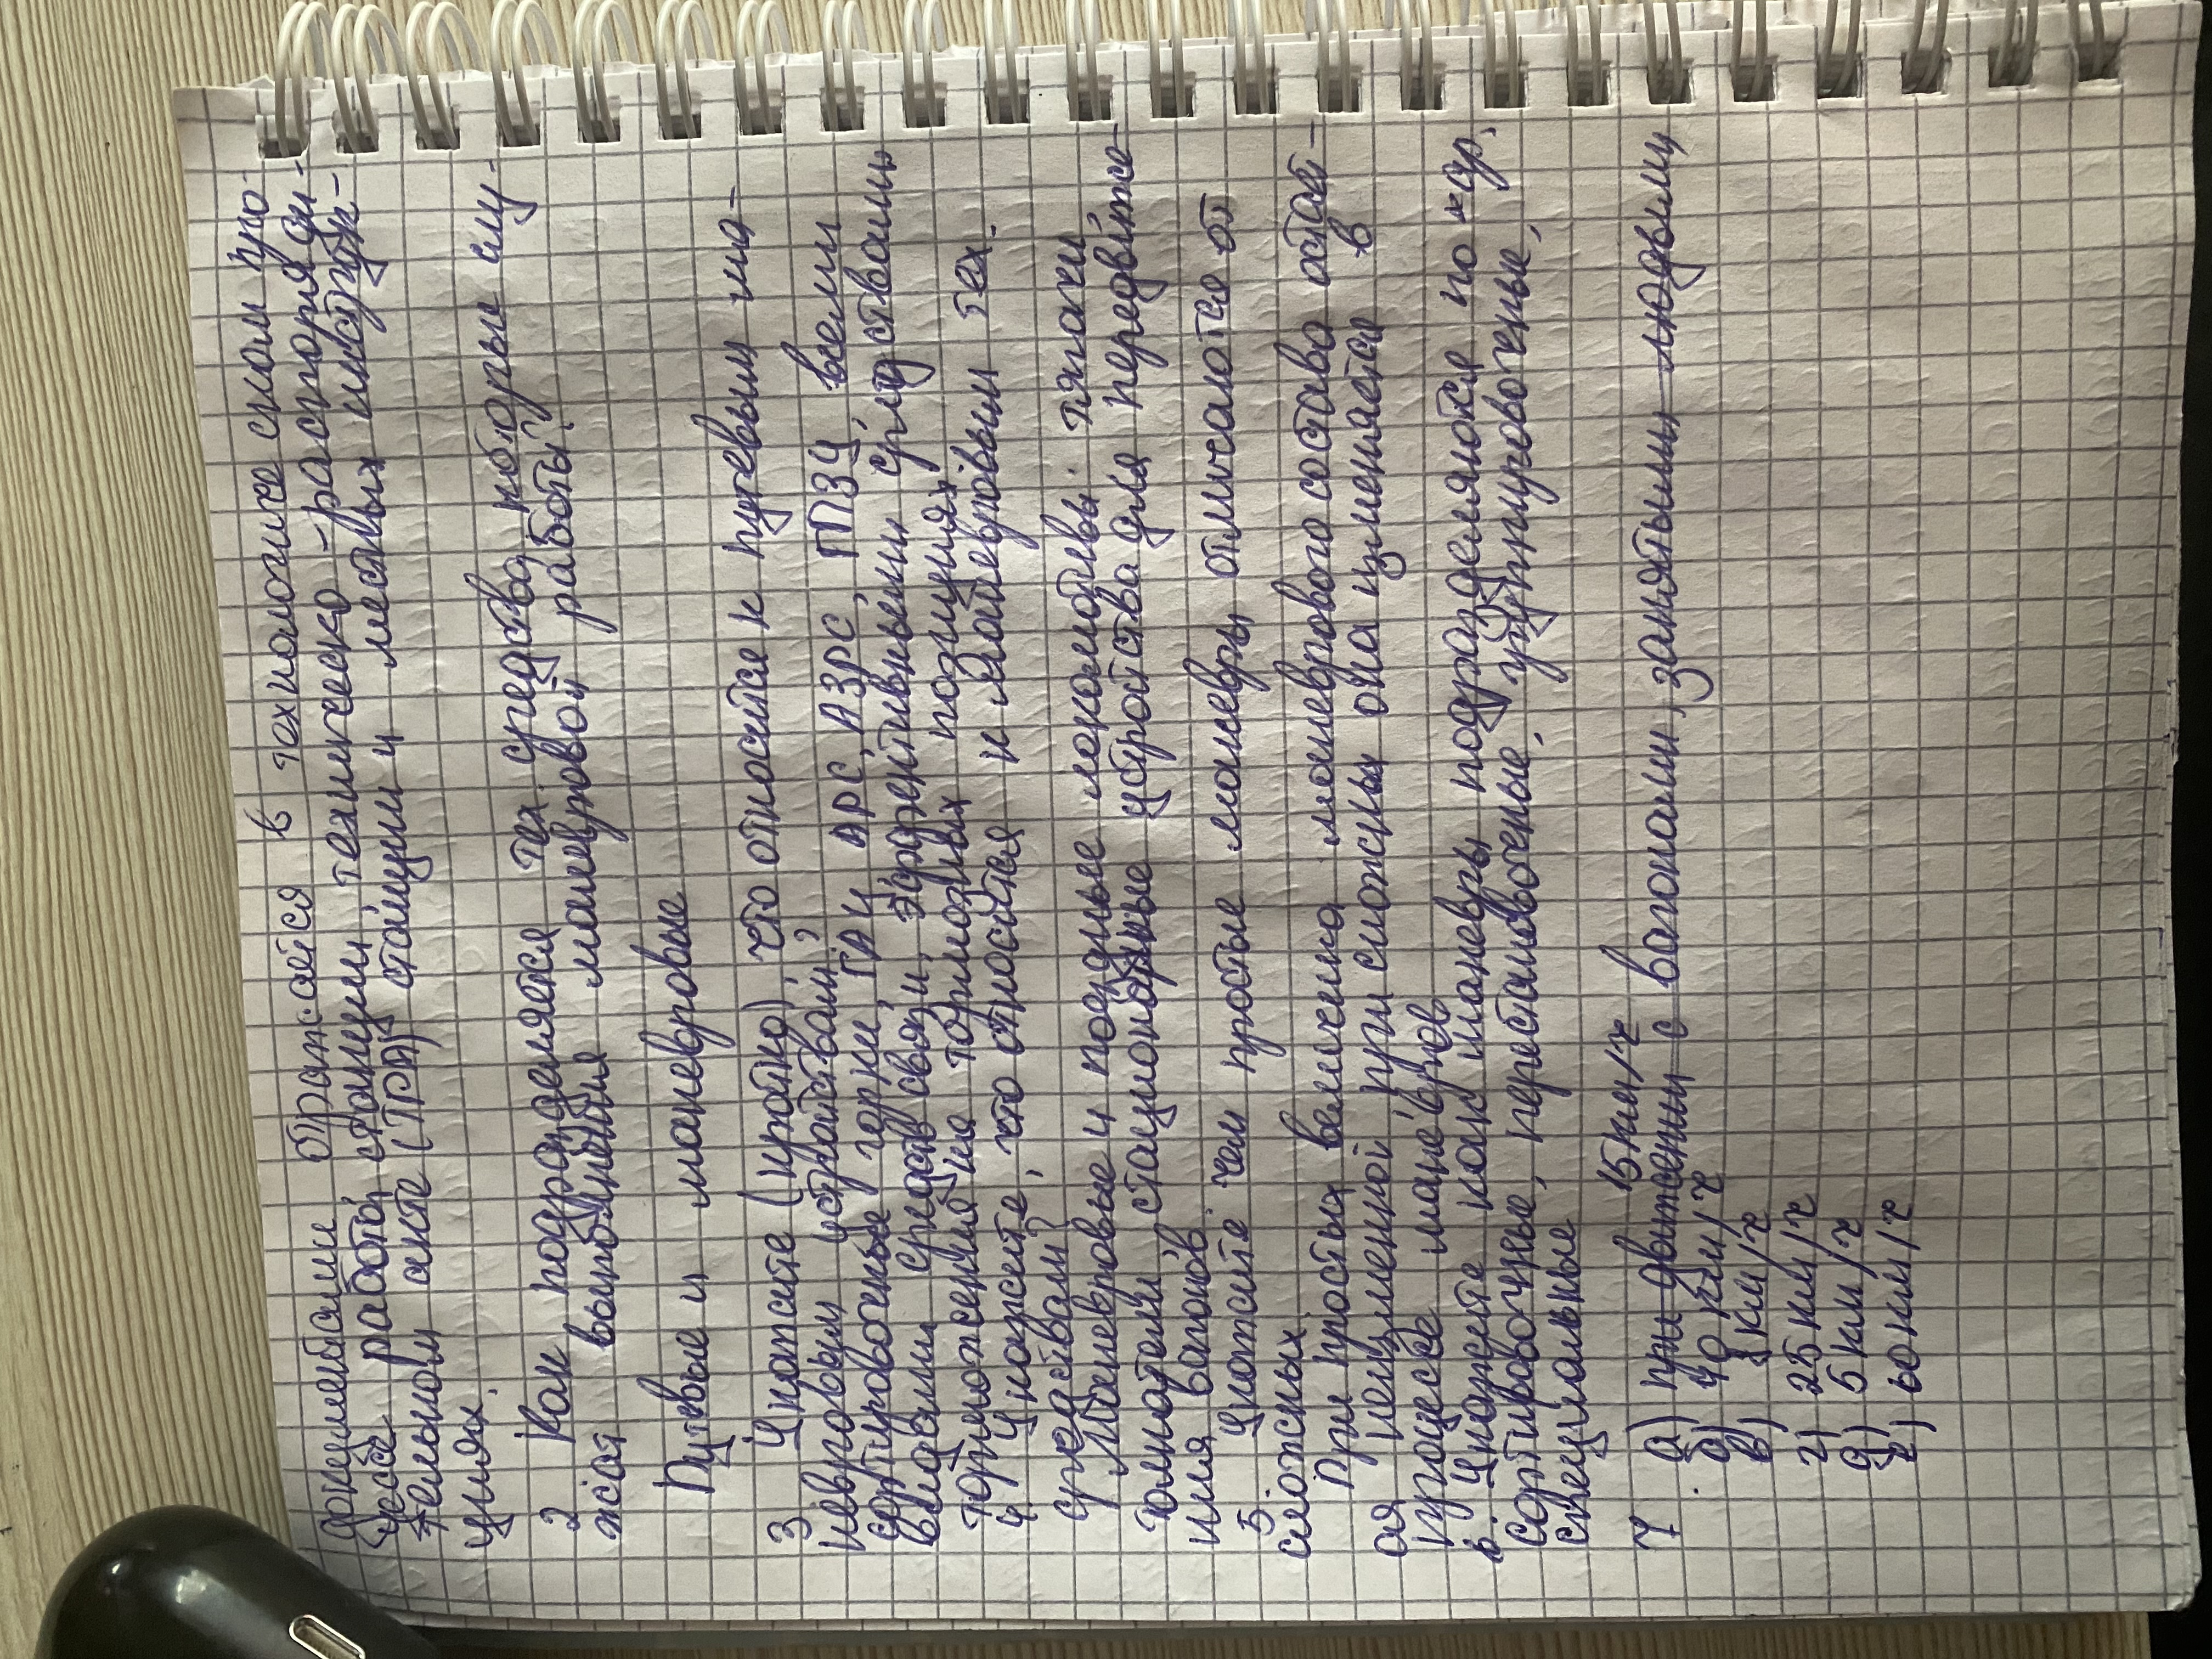 документами отражается в технологическом про-
цессе работы станции, техническо-распоряди-
тельном акте (ТРА) станции и местных инструк-
циях.
2 Как подразделяется тех. средства, которые слу-
жат выполнения маневровой работы?
Путевые и маневровые
3 Укажите (кратко), что относится к путевым ма-
невровым устройствам?
сортировочные горки, ГАЦ АРС, АЗРС, ГПЗУ, всеми
видами средств связи, эффективными средствами
торможения на тормозных позициях
4. Укажите, что относится к маневровым тех.
средствам?
Маневровые и поездные локомотивы. тягачи
толкатели, стационарные устройства для передвиже-
ния вагонов.
5 Укажите чем простые маневры отличаются от
сложных
При простых величина маневрового состава остаёт-
ся неизменной, при сложных она изменяется в
процессе манёвров
6. Укажите как маневры подразделяются по хар.
Сортировочные, перестановочные, группировочные,
специальные
7. а) при движении с вагонами, занятыми людьми 15км/ч
б) 40 км/ч
в) 3 км/ч
г) 25 км/ч
д) 5 км/ч
е) 60 км/ч